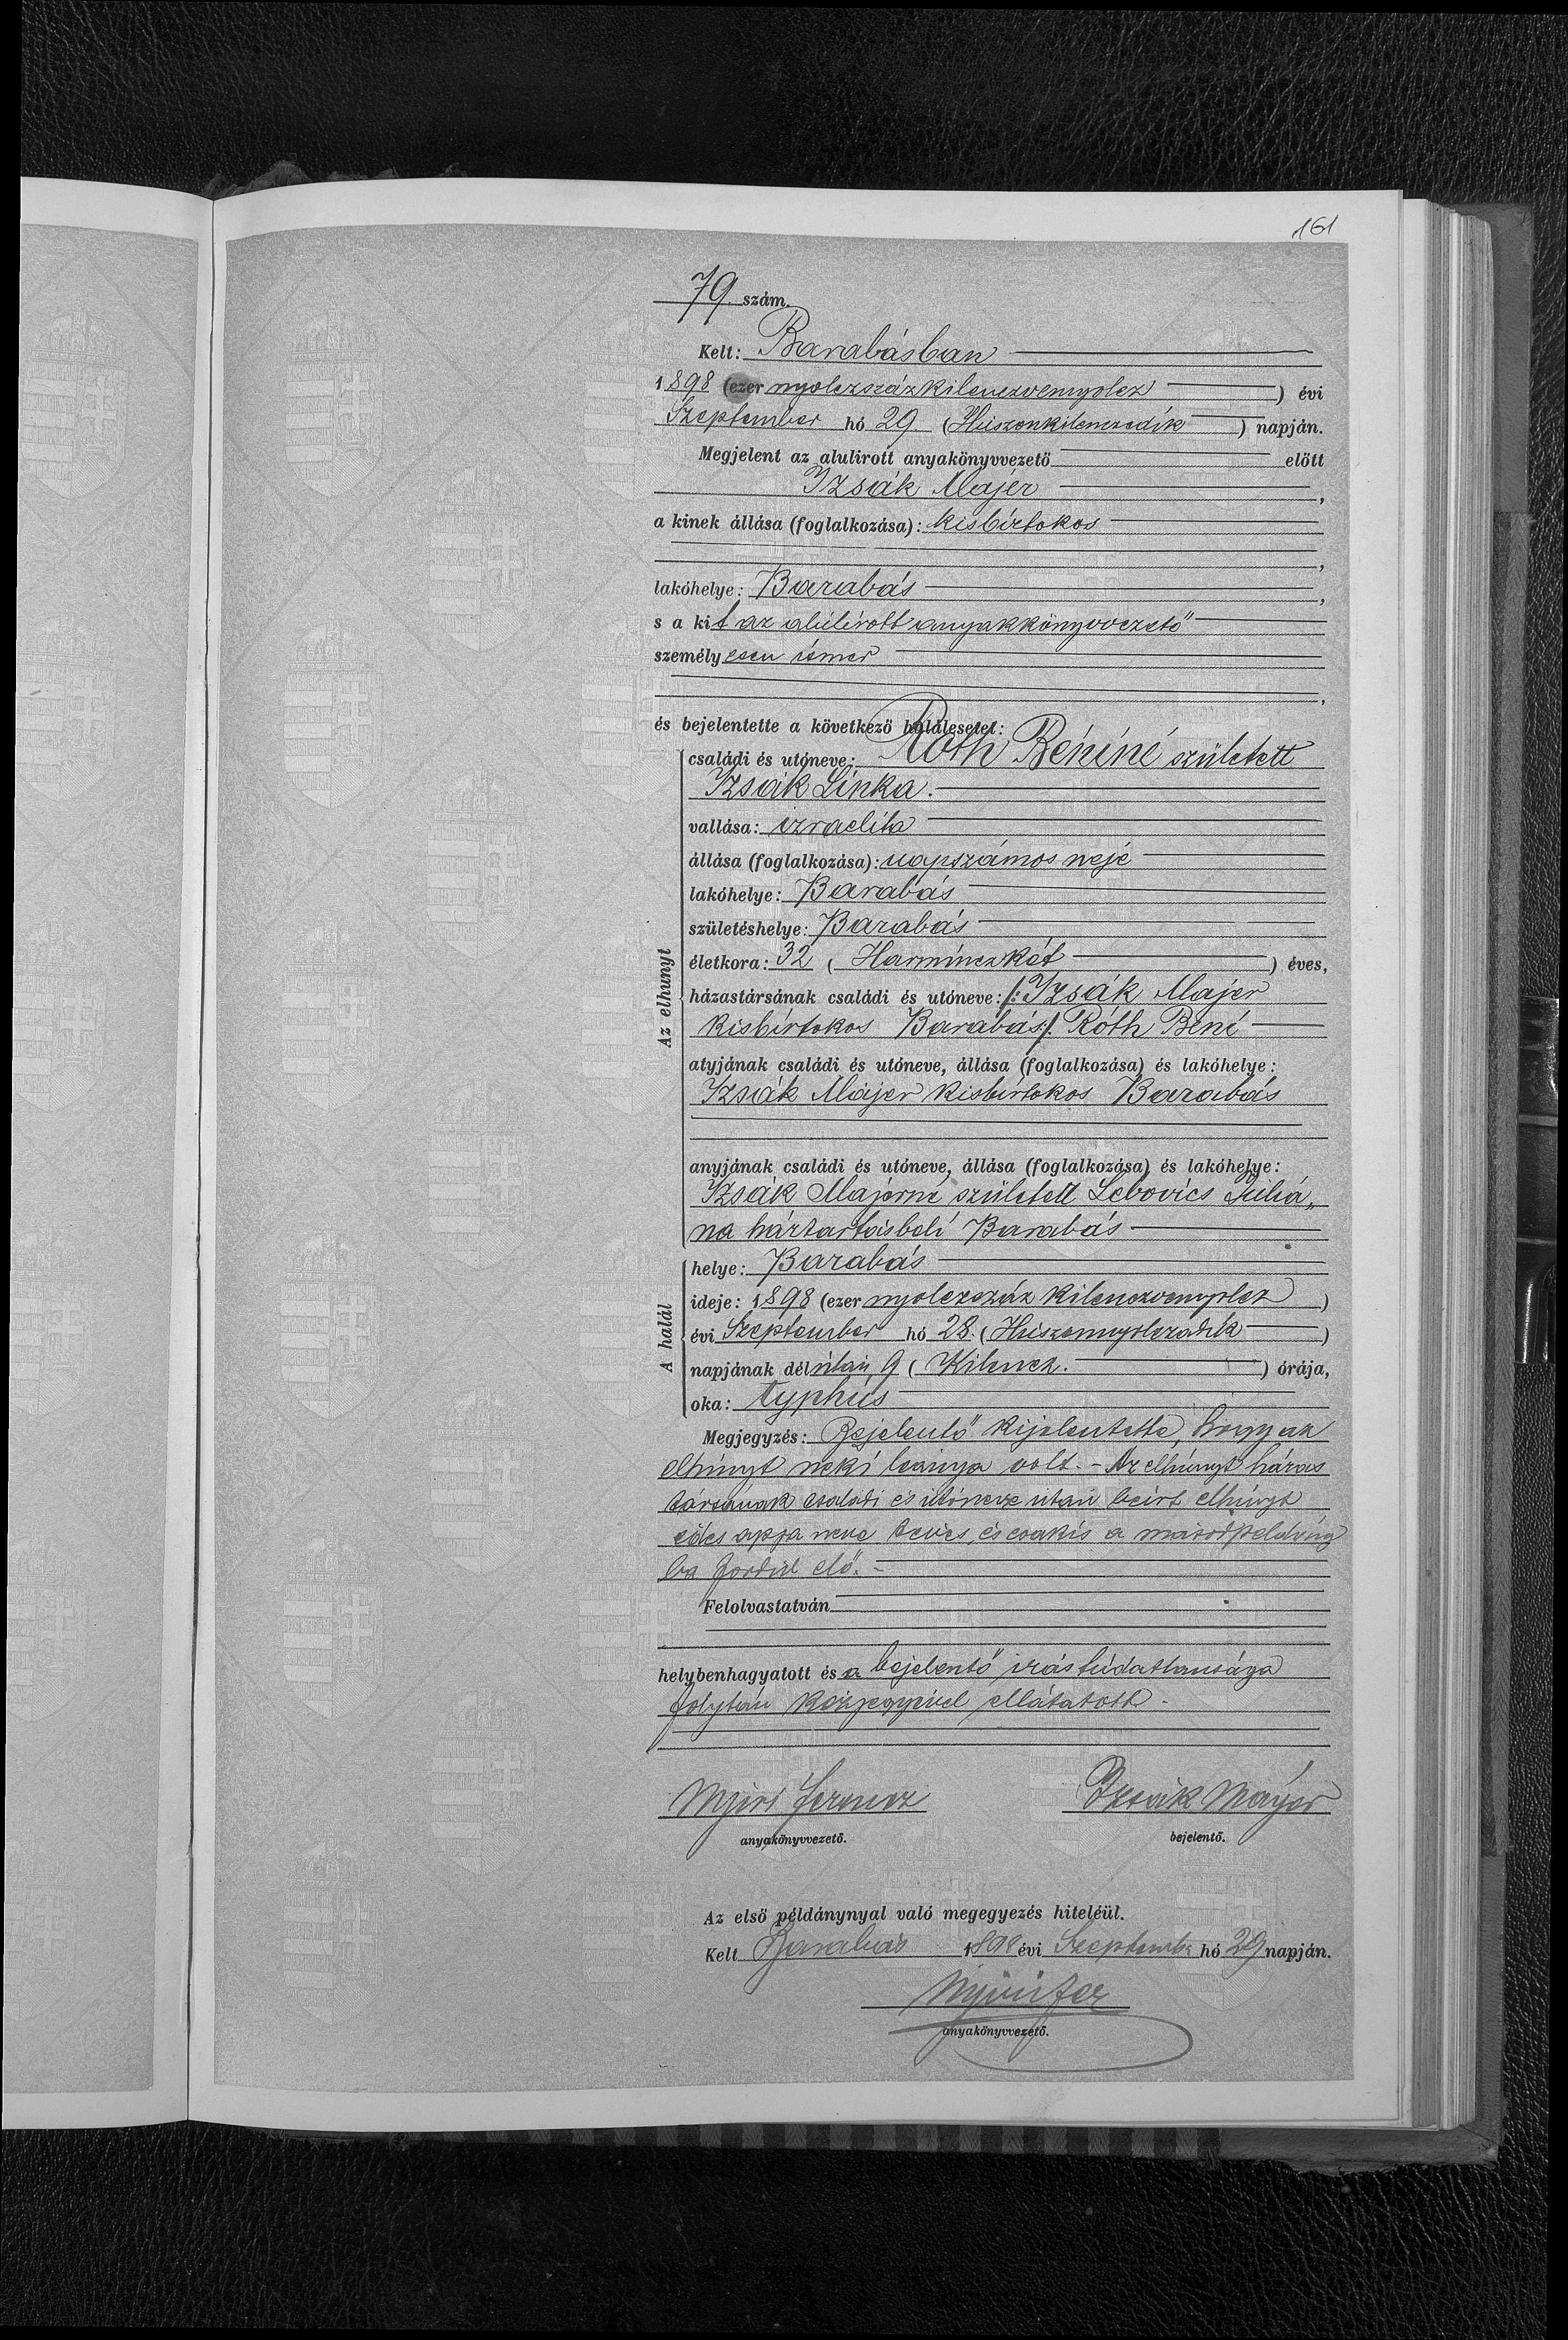 161
79. szám.
Kelt: Barabásban
1898 (ezer nyolczszázkilenczvennyolcz) évi
Szeptember hó 29. (Húszonkilenczedik) napján.
Megjelent az alulirott anyakönyvvezető előtt
Izsák Majér,
a kinek állása (foglalkozása): kisbírtokos
,
lakóhelye: Barabás,
s a kit az alúlírott anyakkönyvvezető
személyesen ismer
,
és bejelentette a következő halálesetet:
Az elhunyt
családi és utóneve: Róth Béniné született
Izsák Línka.
vallása: izraelita
állása (foglalkozása): napszámos neje
lakóhelye: Barabás
születéshelye: Barabás
életkora: 32 (Harmínczkét) éves,
házastársának családi és utóneve: /: Izsák Majer
kisbírtokos Barabás :/. Róth Béni
atyjának családi és utóneve, állása (foglalkozása) és lakóhelye:
Izsák Májer kisbírtokos Barabás
anyjának családi és utóneve, állása (foglalkozása) és lakóhelye:
Izsák Majerné született Lebovícs Juliá„
na háztartásbeli Barabás
A halál
helye: Barabás
ideje: 1898 (ezer nyolczszáz kilenczvennyolcz)
évi Szeptember hó 28. (Húszonnyolczadik)
napjának délútán, 9 (Kilencz.) órája,
oka: typhús
Megjegyzés: Bejelentő kijelentette, hogy az
elhúnyt neki leánya volt. - Az elhúnyt házas
társának családi és útóneve útán beírt elhúnyt
édes apja neve téves, és csakis a másodpéldány
ba fordúl elő. -
Felolvastatván
helybenhagyatott és a bejelentő irástúdatlansága
folytán kézjegyével ellátatott -
Nyiri Ferencz Izsák Máyer
anyakönyvvezető. bejelentő.
Az első példánynyal való megegyezés hiteléül.
Kelt Barabás 1898 évi Szeptemb. hó 29 napján.
Nyiri Fer
anyakönyvvezető.